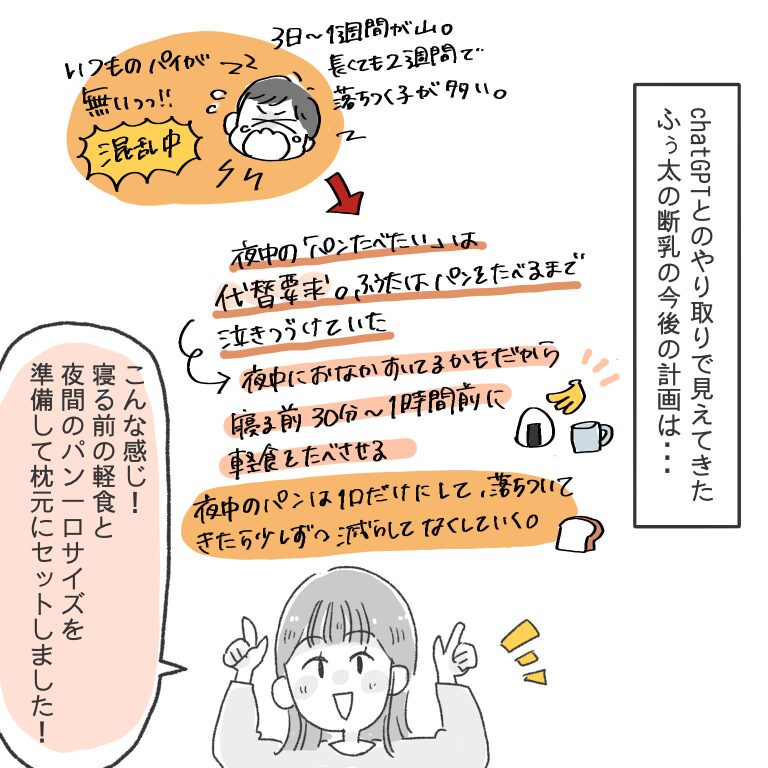 chatGPTとのやり取りで見えてきた
ふぅ太の断乳の今後の計画は・・・
いつものパイが
無いっっ!!
混乱中
3日〜1週間が山。
長くても2週間で
落ちつく子が多い。
夜中の「パンたべたい」は
代替要求。ふうたはパンをたべるまで
泣きつづけていた
夜中におなかすいてるかもだから
寝る前30分〜1時間前に
軽食をたべさせる
夜中のパンは1口だけにして、落ちついて
きたら少しずつ減らしてなくしていく。
こんな感じ!
寝る前の軽食と
夜間のパン一口サイズを
準備して枕元にセットしました!